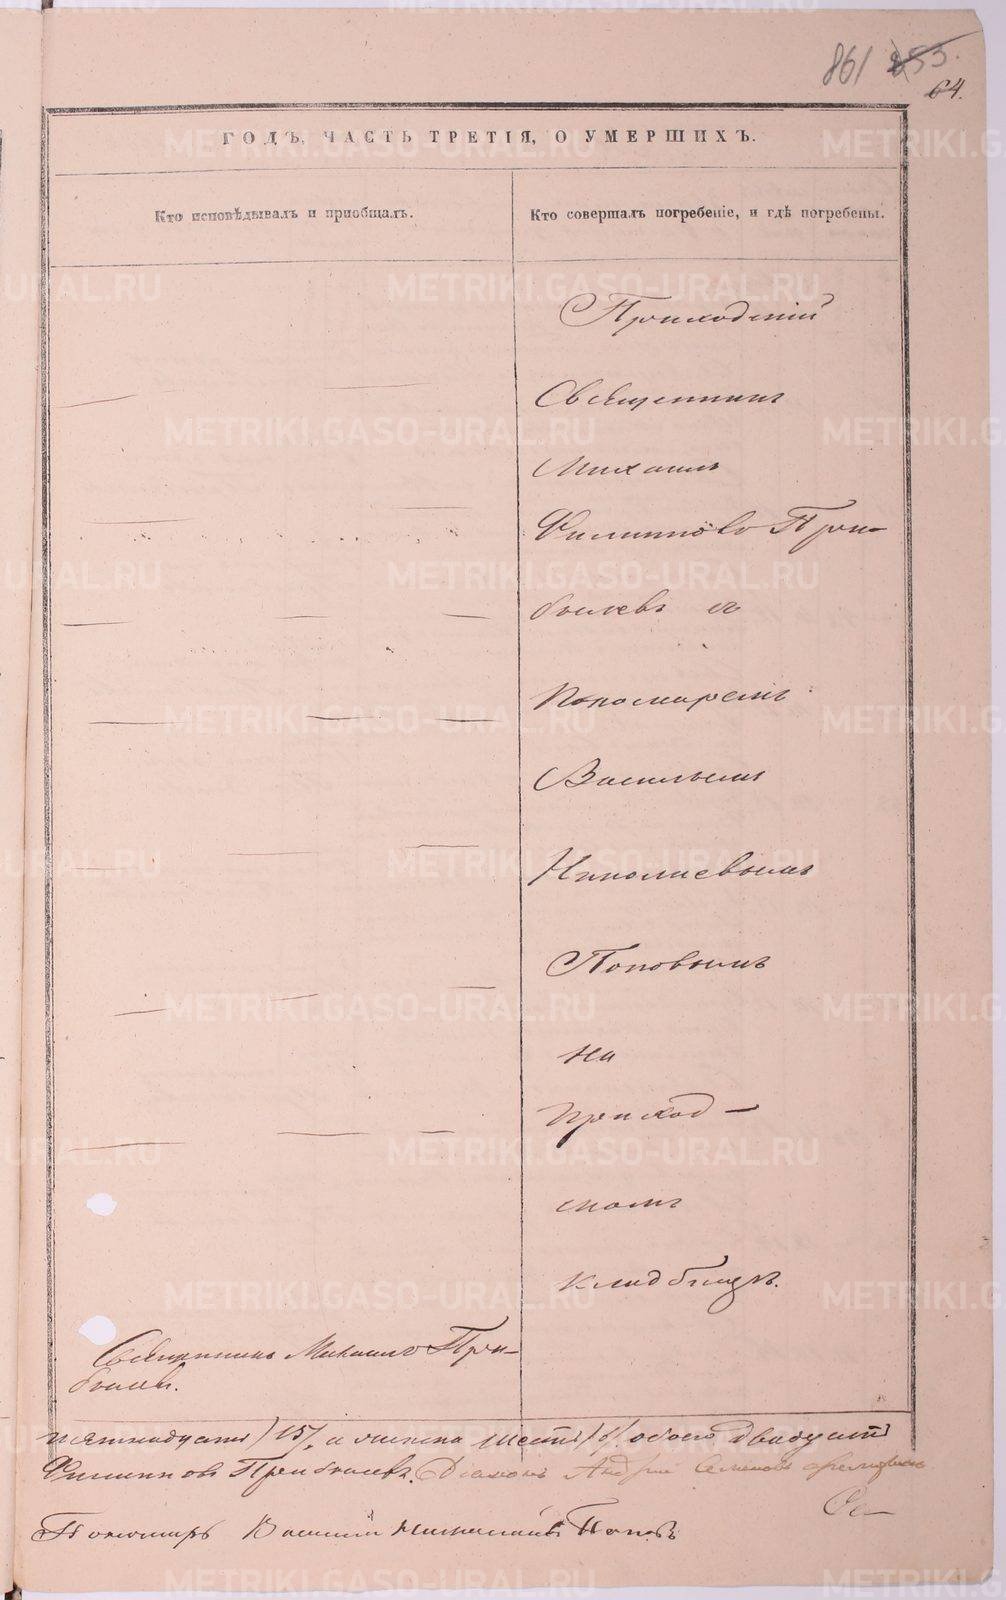 861 853.
64.
ГОДЪ, ЧАСТЬ ТРЕТІЯ, О УМЕРШИХЪ.
Кто исповѣдывалъ и пріобщалъ.
Кто совершалъ погребеніе, и гдѣ погребены.
Приходскій
Священникъ
Михаилъ
Филипповъ При-
былевъ съ
Пономаремъ
Васильемъ
Николаевымъ
Поповымъ
на
приход-
скомъ
кладбищѣ.
Священникъ Михаилъ При-
былевъ.
пятнадцать /15/, а женска шесть /6/. обоего двадцать
Филипповъ Прибылевъ. Діаконъ Андрей Семеновъ
Пономарь Василій Николаевъ Поповъ
METRIKI.GASO-URAL.RU